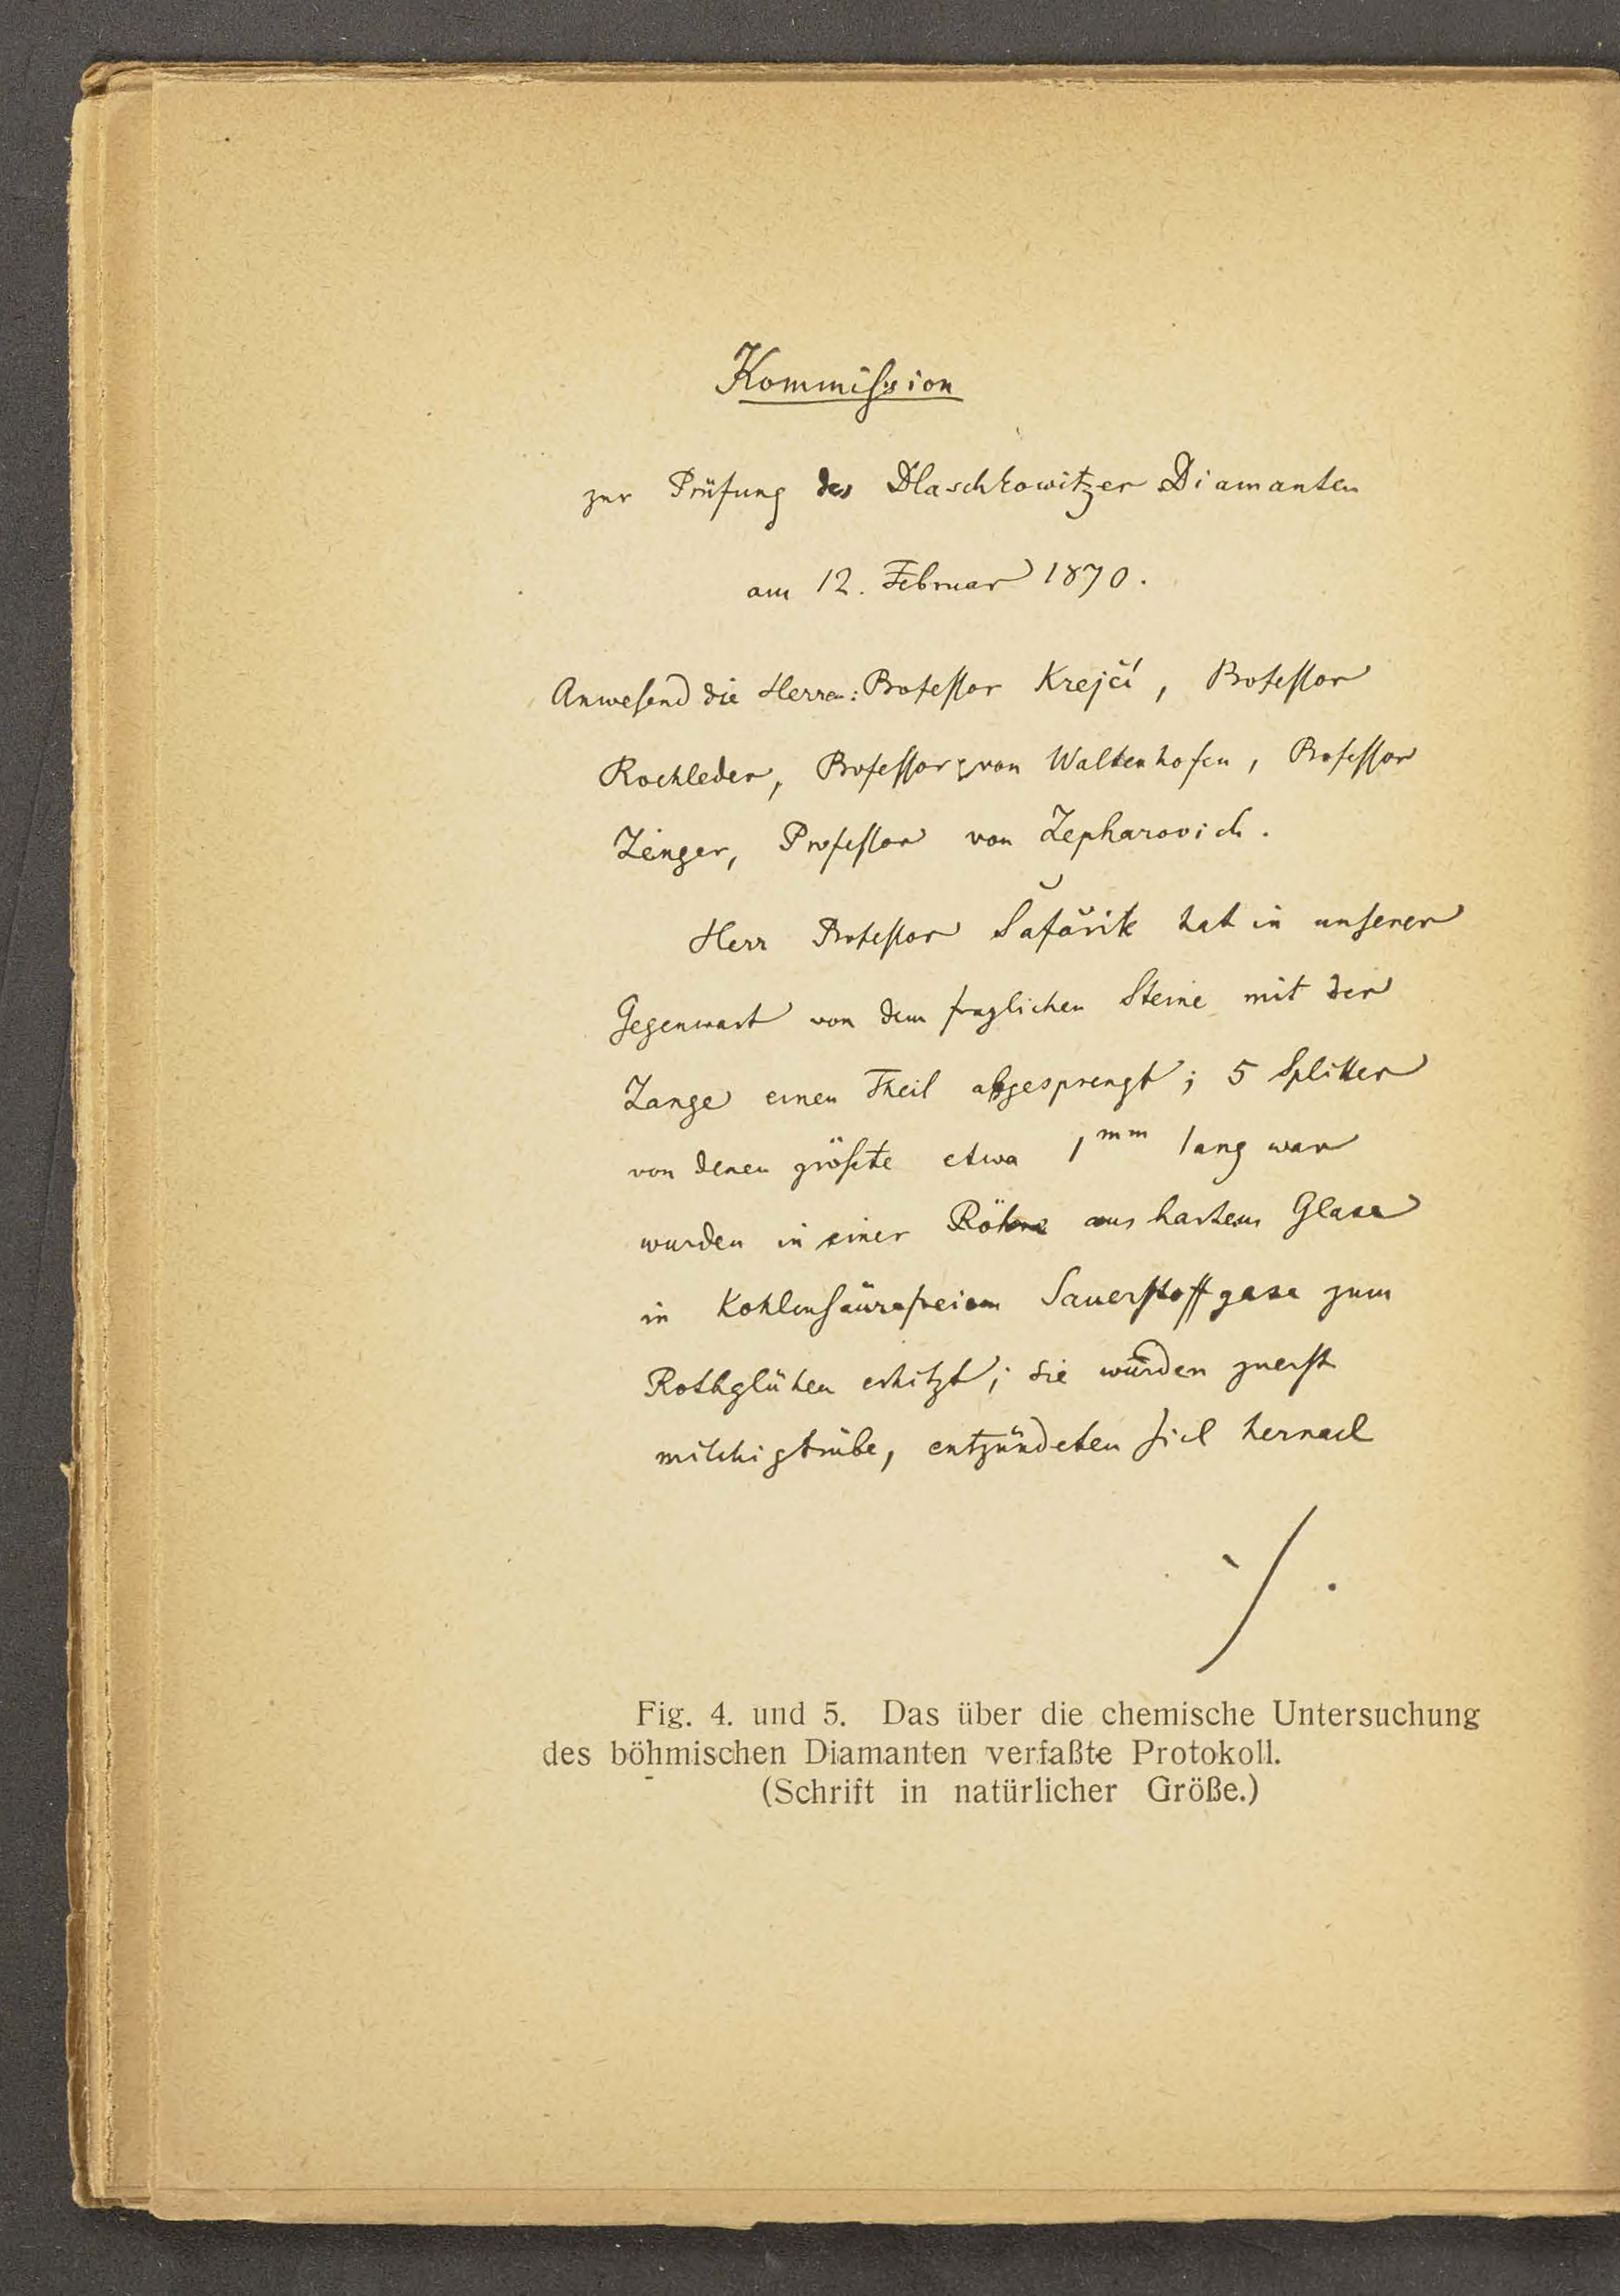 Kommission
zur Prüfung des Dlaschkowitzer Diamanten
am 12. Februar 1870.
Anwesend die Herren: Professor Krejčí, Professor
Rochleder, Professor von Waltenhofen, Professor
Zenger, Professor von Zepharovich.
Herr Professor Šafařik hat in unserer
Gegenwart von dem fraglichen Steine mit der
Zange einen Theil abgesprengt; 5 Splitter
von denen größte etwa 1mm lang war
wurden in einer Röhre aus hartem Glase
in Kohlensäurefreiem Sauerstoffgase zum
Rothglühen erhitzt; sie wurden zuerst
milchigtrübe, entzündeten sich hernach
./.
Fig. 4. und 5. Das über die chemische Untersuchung
des böhmischen Diamanten verfaßte Protokoll.
(Schrift in natürlicher Größe.)